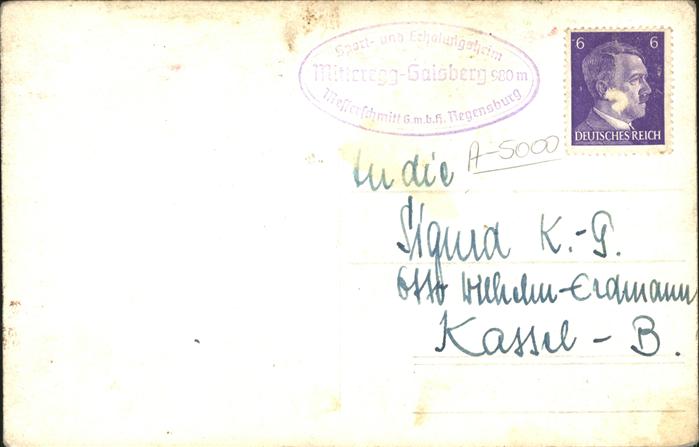 Sport- und Erholungsheim
Mitteregg-Gaisberg 980 m
Messerschmitt G.m.b.H. Regensburg
6 6
DEUTSCHES REICH
A-5000
An die
Sigurd K.-G.
Otto Wilhelm-Erdmann
Kassel - B.